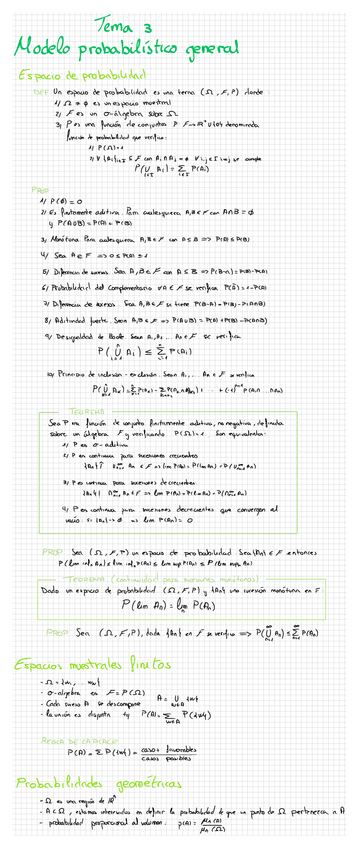 Tema 3
Modelo probabilístico general
Espacio de probabilidad
DEF Un espacio de probabilidad es una terna (Ω, F, P) donde:
1) Ω ≠ ∅ es un espacio muestral
2) F es un σ-álgebra sobre Ω
3) P es una función de conjuntos P: F → R⁺ ∪ {0} denominada
función de probabilidad que verifica:
1) P(Ω) = 1
2) ∀ {Ai}i∈I ⊆ F con Ai ∩ Aj = ∅ ∀ i,j ∈ I i≠j se cumple
P(∪ Ai) = Σ P(Ai)
PROP
1) P(∅) = 0
2) Es finitamente aditiva. Para cualesquiera A,B ∈ F con A∩B = ∅
y P(A∪B) = P(A) + P(B)
3) Monótona. Para cualesquiera A,B ∈ F con A ⊆ B ⇒ P(A) ≤ P(B)
4) Sea A ∈ F ⇒ 0 ≤ P(A) ≤ 1
5) Diferencia de sucesos. Sean A,B ∈ F con A ⊆ B ⇒ P(B-A) = P(B) - P(A)
6) Probabilidad del Complementario ∀A ∈ F se verifica P(Ā) = 1 - P(A)
7) Diferencia de sucesos. Sea A,B ∈ F se tiene P(B-A) = P(B) - P(A∩B)
8) Aditividad fuerte. Sean A,B ∈ F ⇒ P(A∪B) = P(A) + P(B) - P(A∩B)
9) Desigualdad de Boole Sean A1, A2, ... An ∈ F se verifica
P(∪ Ai) ≤ Σ P(Ai)
10) Principio de inclusión-exclusión. Sean A1, ... An ∈ F se verifica
TEOREMA
Sea P una función de conjunto finitamente aditiva, no negativa, definida
sobre un álgebra F y verificando P(Ω) = 1 Son equivalentes:
1) P es σ-aditiva
2) P es continua para sucesiones crecientes
3) P es continua para sucesiones decrecientes
4) P es continua para sucesiones decrecientes que convergen al
vacío si {An} → ∅ ⇒ lim P(An) = 0
PROP Sea (Ω, F, P) un espacio de probabilidad Sea {An} ∈ F entonces
P(lim inf An) ≤ lim inf P(An) ≤ lim sup P(An) ≤ P(lim sup An)
TEOREMA (continuidad para sucesiones monótonas)
Dado un espacio de probabilidad (Ω, F, P) y {An} una sucesión monótona en F
P(lim An) = lim P(An)
PROP Sea (Ω, F, P), dada {An} en F se verifica ⇒ P(∪ An) ≤ Σ P(An)
Espacios muestrales finitos
- σ-álgebra es F = P(Ω)
- Cada suceso A se descompone A = ∪ {w}
- La unión es disjunta P(A) = Σ P({w})
REGLA DE LAPLACE
P(A) = Σ P{w} = casos favorables
casos posibles
Probabilidades geométricas
- Ω es una región de Rⁿ
- A ⊂ Ω, estamos interesados en definir la probabilidad de que un punto de Ω pertenezca a A
- probabilidad proporcional al volumen. P(A) = μn(A)
μn(Ω)